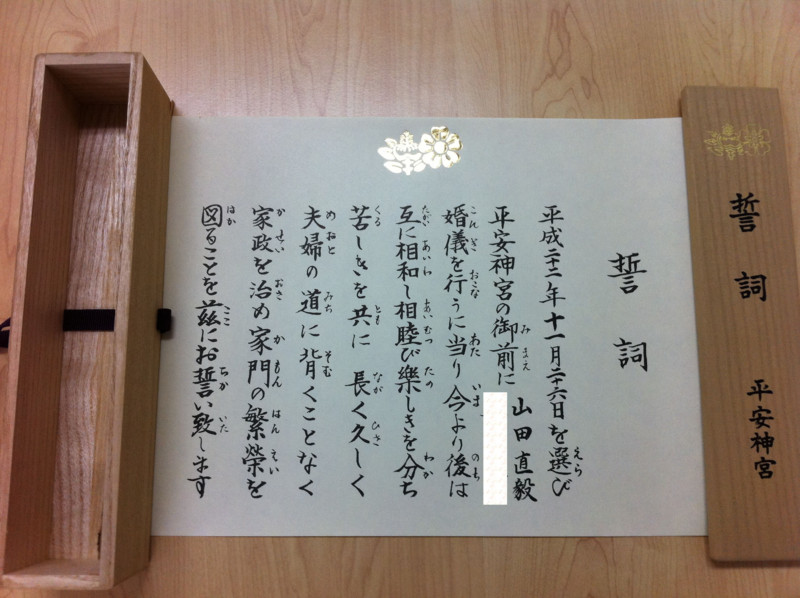 誓詞 平安神宮
誓詞
平成二十二年十一月二十六日を選び
山田直毅
平安神宮の御前に
婚儀を行うに当り今より後は
互に相和し相睦び樂しきを分ち
苦しきを共に 長く久しく
夫婦の道に背くことなく
家政を治め家門の繁榮を
図ることを茲にお誓い致します